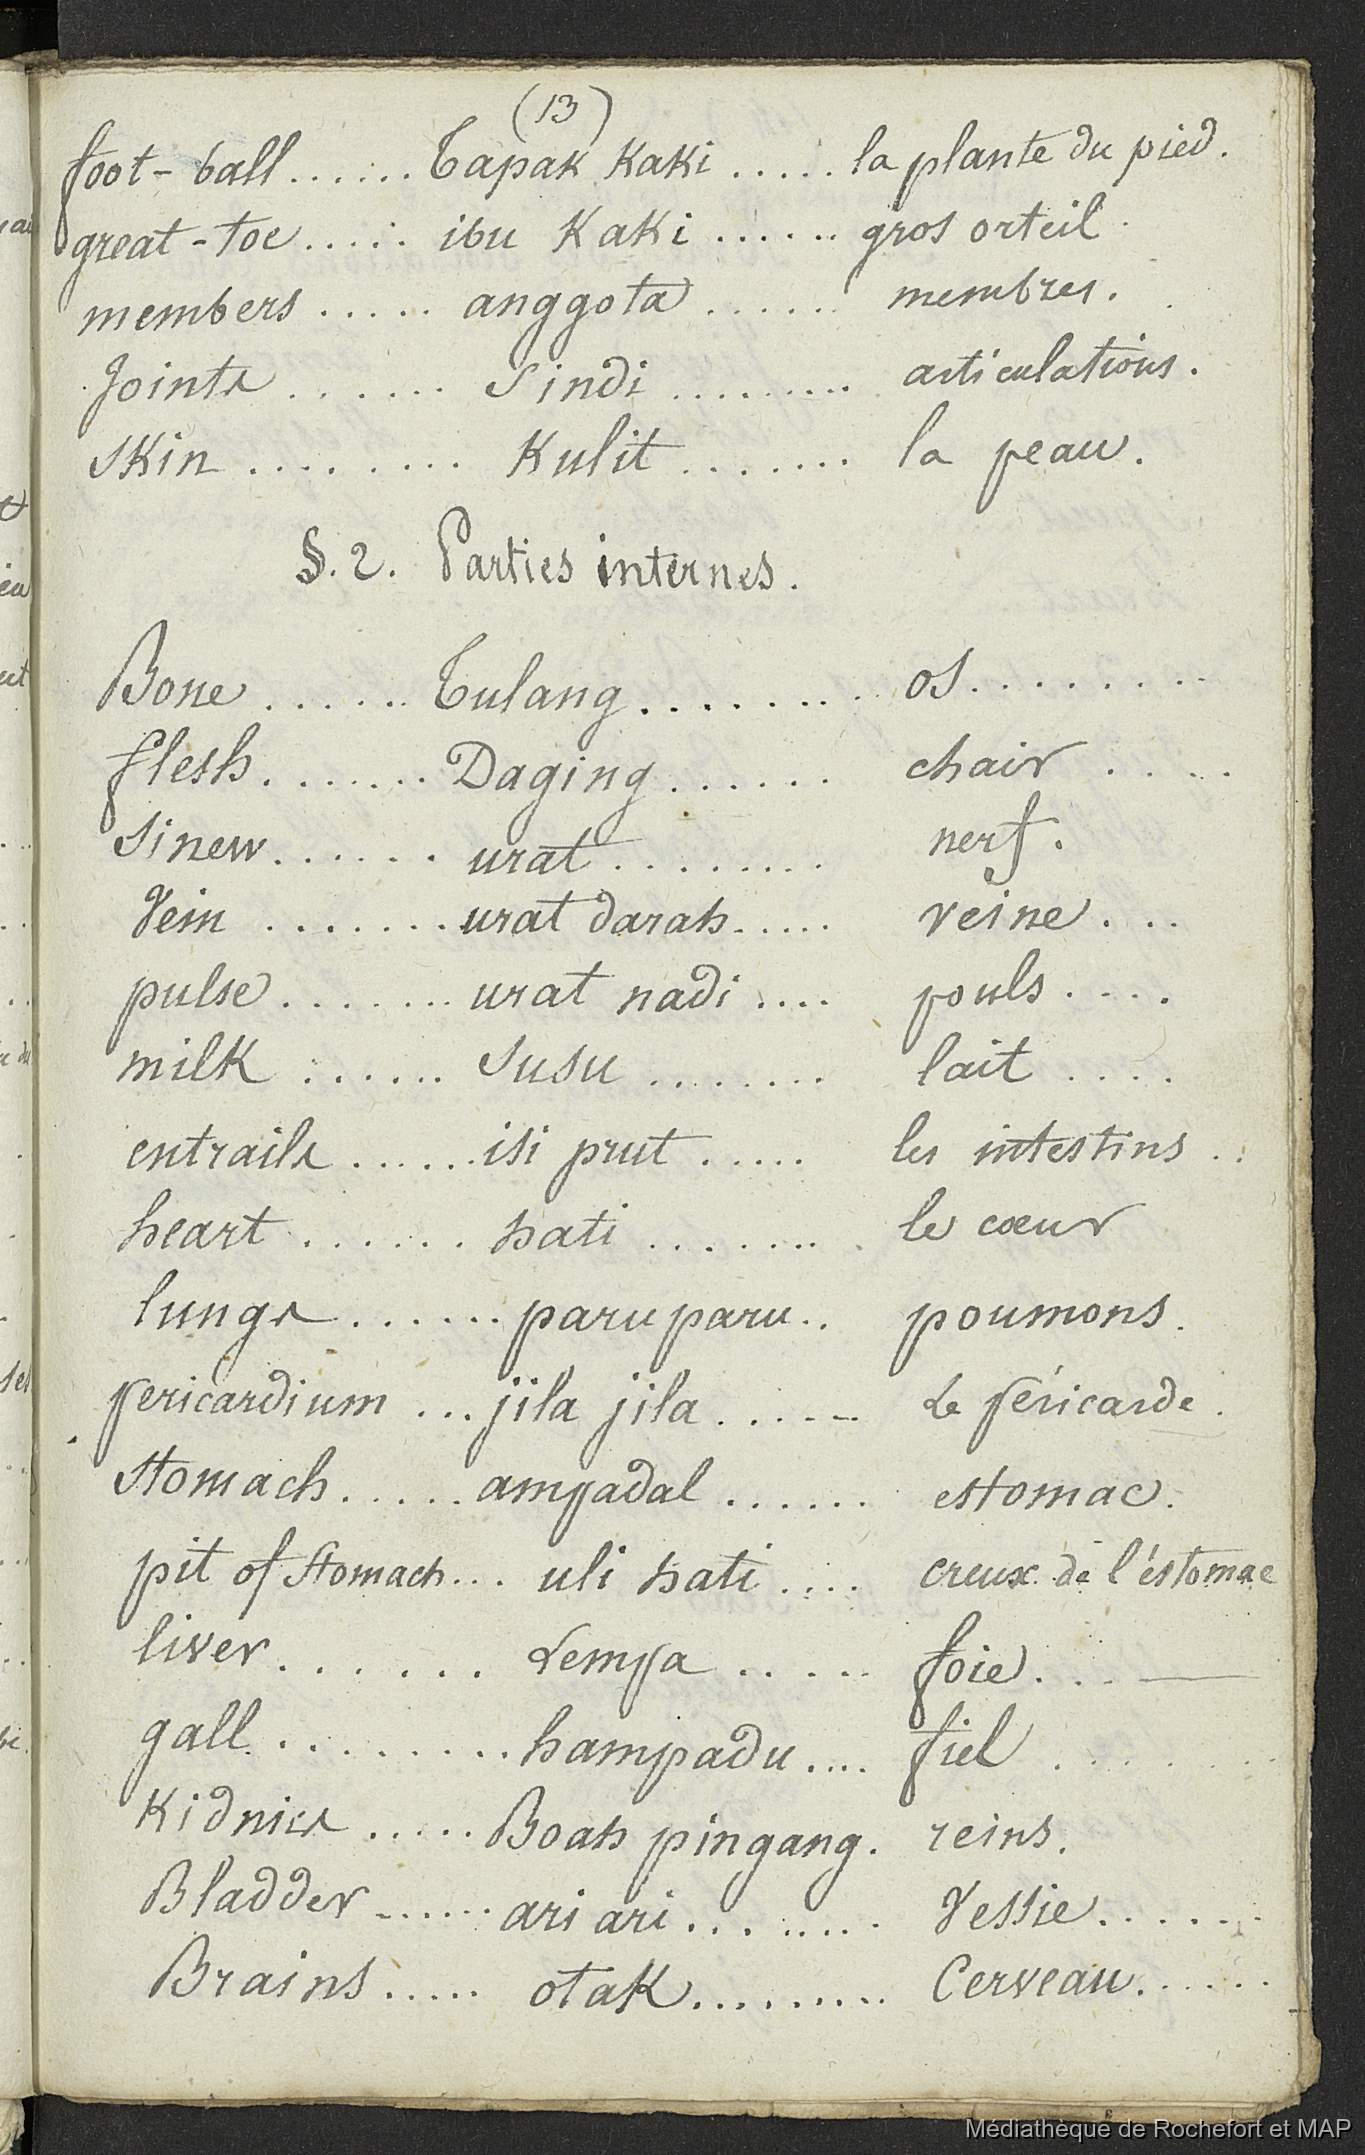 (13)
foot-ball...... Tapak Kaki..... la plante du pied.
great-toe..... ibu Kaki...... gros orteil.
members..... anggota...... membres.
Joints...... Sindi......... articulations.
SKin........ Kulit....... la peau.
§. 2. Parties internes.
Bone...... Tulang....... os........
flesh....... Daging...... chair....
Sinew...... urat........ nerf.
Vein....... urat darah..... veine...
pulse....... urat nadi.... pouls....
milK...... Susu....... lait....
entrails...... isi prut..... les intestins..
heart...... hati....... le cœur
lungs...... paru paru.. poumons.
pericardium... jila jila...... Le Péricarde.
Stomach..... ampadal...... estomac.
pit of Stomach... uli hati.... creux de l'éstomac
liver...... Lempa..... foie...
gall......... hampadu.... fiel......
Kidnies..... Boah pingang. reins.
Bladder...... ari ari........ Vessie......
Brains..... otaK......... Cerveau.....
Médiathèque de Rochefort et MAP